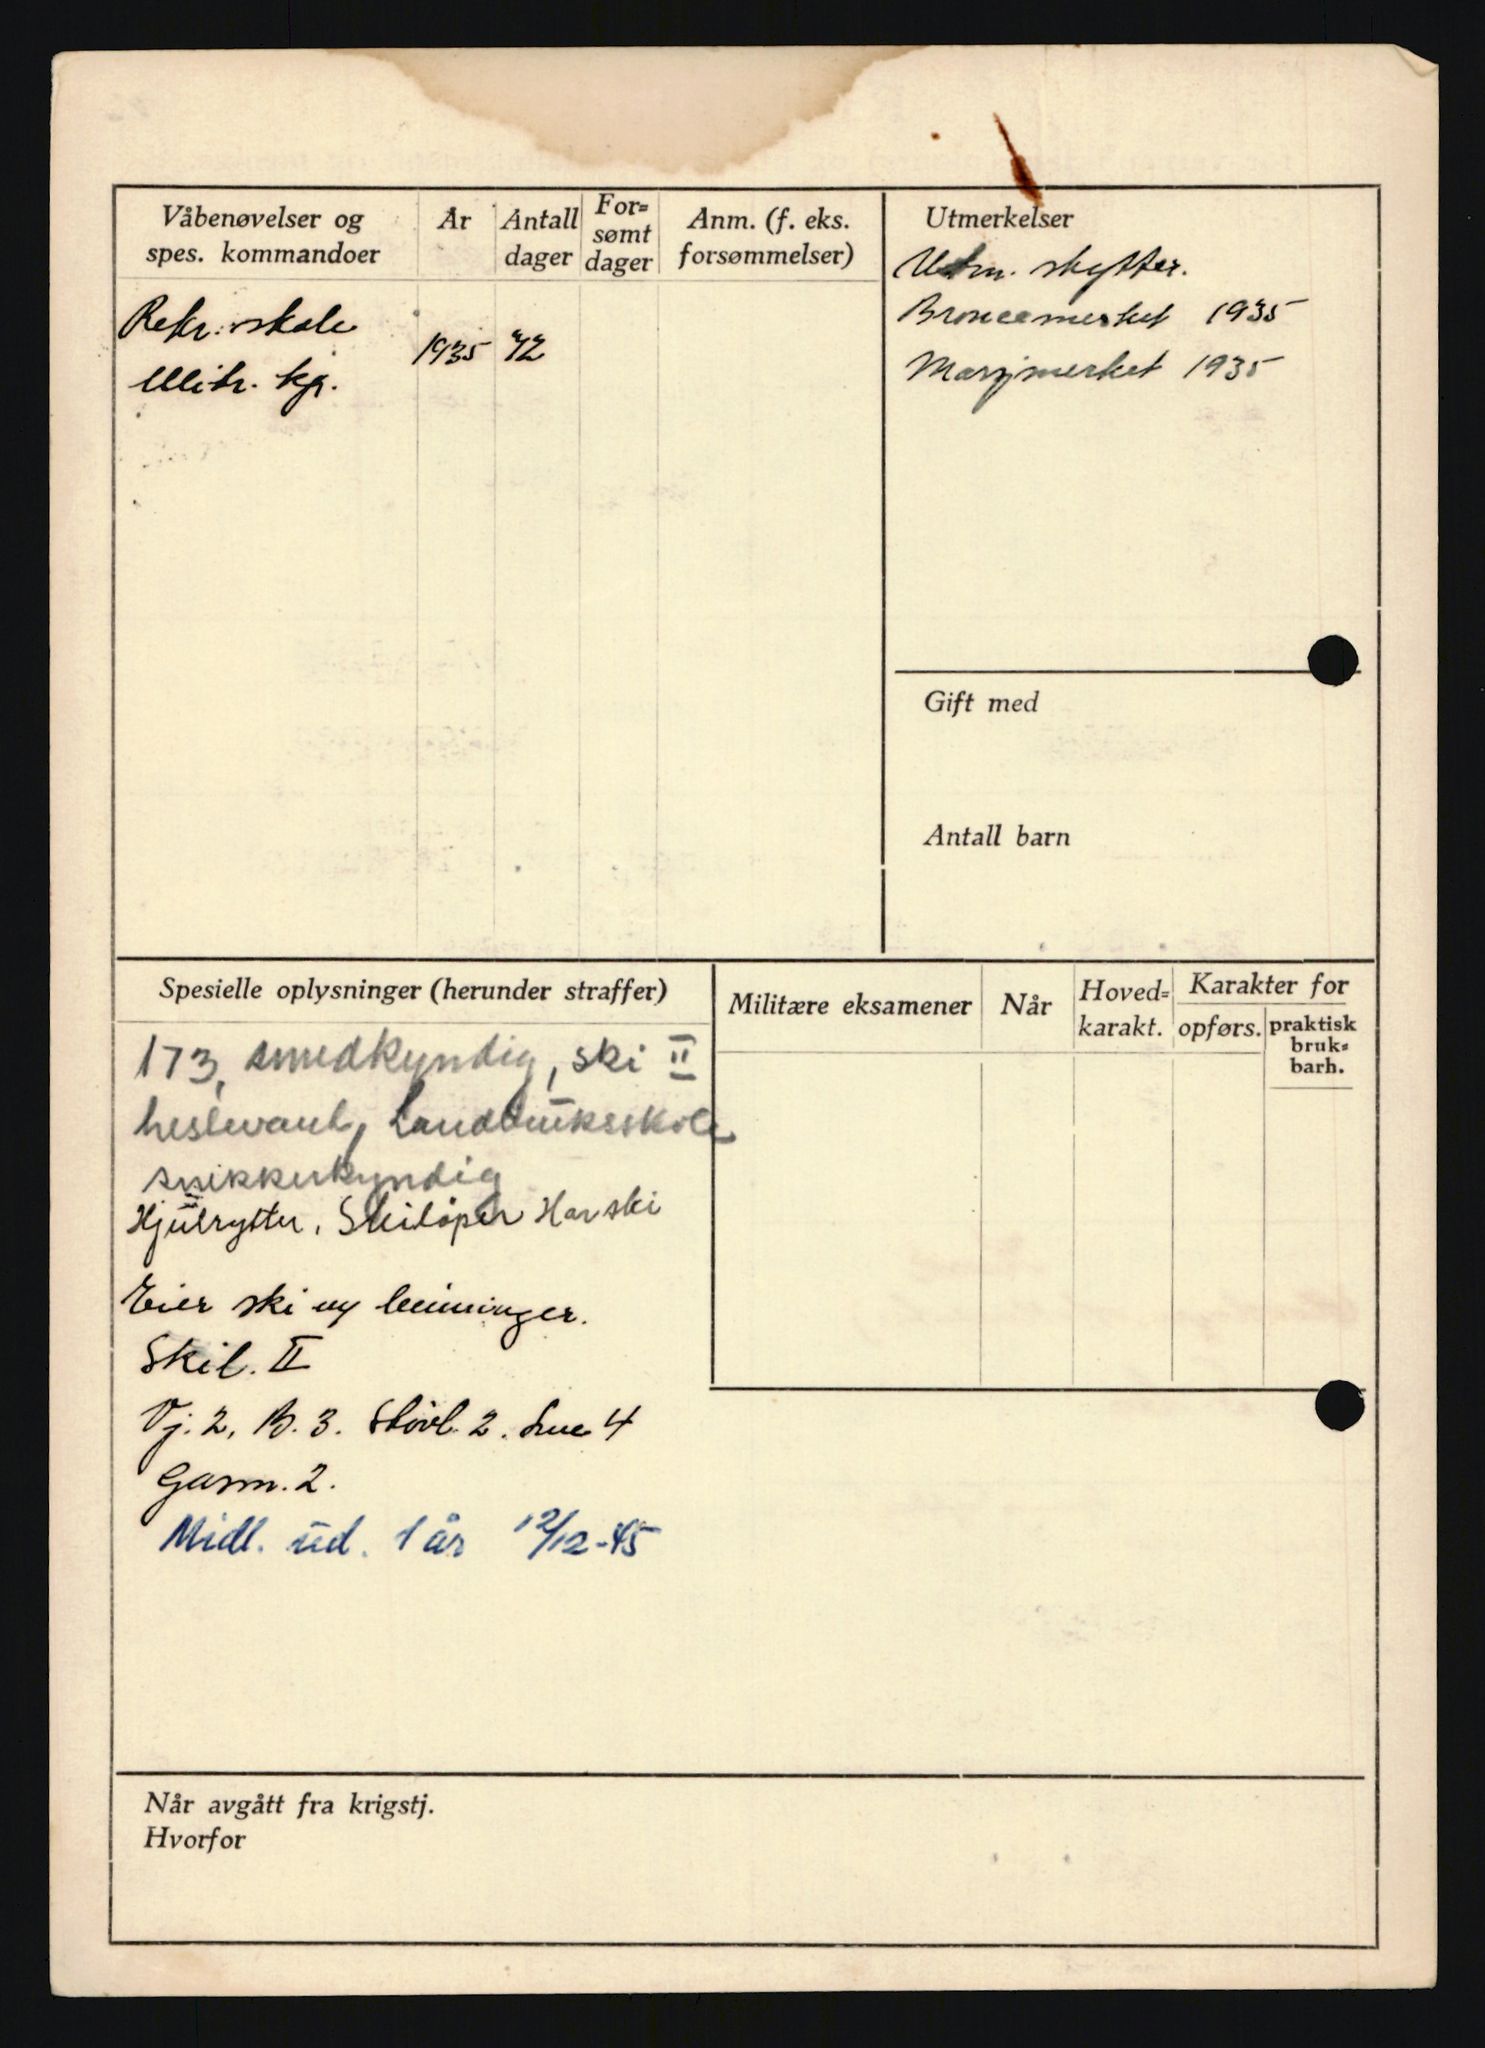 Våbenøvelser og spes. kommandoer
År
Antall dager
For= sømt dager
Anm. (f. eks. forsømmelser)
Rekr. skole
Mitr. kp.
1935 72
Utmerkelser
Utm. skytter.
Broncemerket 1935
Marsjmerket 1935
Gift med
Antall barn
Spesielle oplysninger (herunder straffer)
173, smedkyndig, ski II
hestevant, Landbruksskole
snikkerkyndig
Hjulrytter, Skiløper Har ski
Eier ski og beinninger.
Skil. II
Vj. 2, B. 3. Støvl. 2. Lue 4
Gasm. 2.
Midl. ud. 1 år 12/12-45
Militære eksamener
Når
Hoved= karakt.
Karakter for
opførs.
praktisk bruk= barh.
Når avgått fra krigstj.
Hvorfor